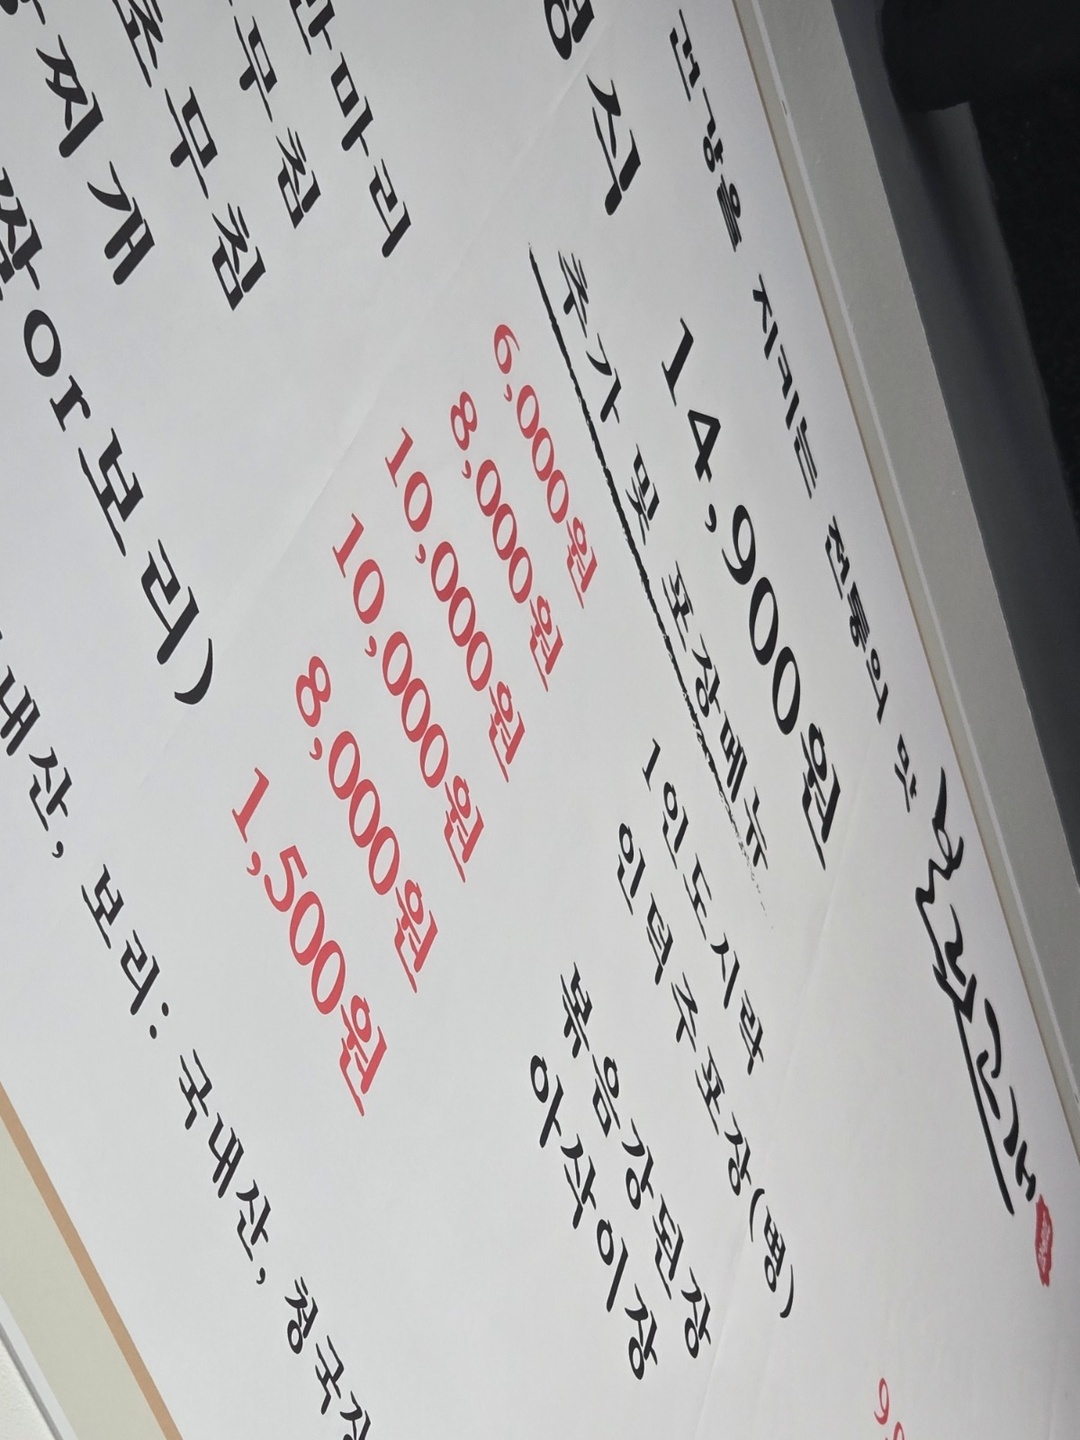 건강을 지키는 전통의 맛
정식 14,900원
추가 및 포장메뉴
마리 6,000원
무침 8,000원
초무침 10,000원
찌개 10,000원
8,000원
or보리) 1,500원
1인도시락
인덕주포장(병)
볶음강된장
아삭이장
내산, 보리: 국내산, 청국장